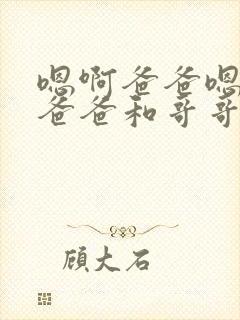 嗯啊爸爸嗯
爸爸和哥哥
顾大石